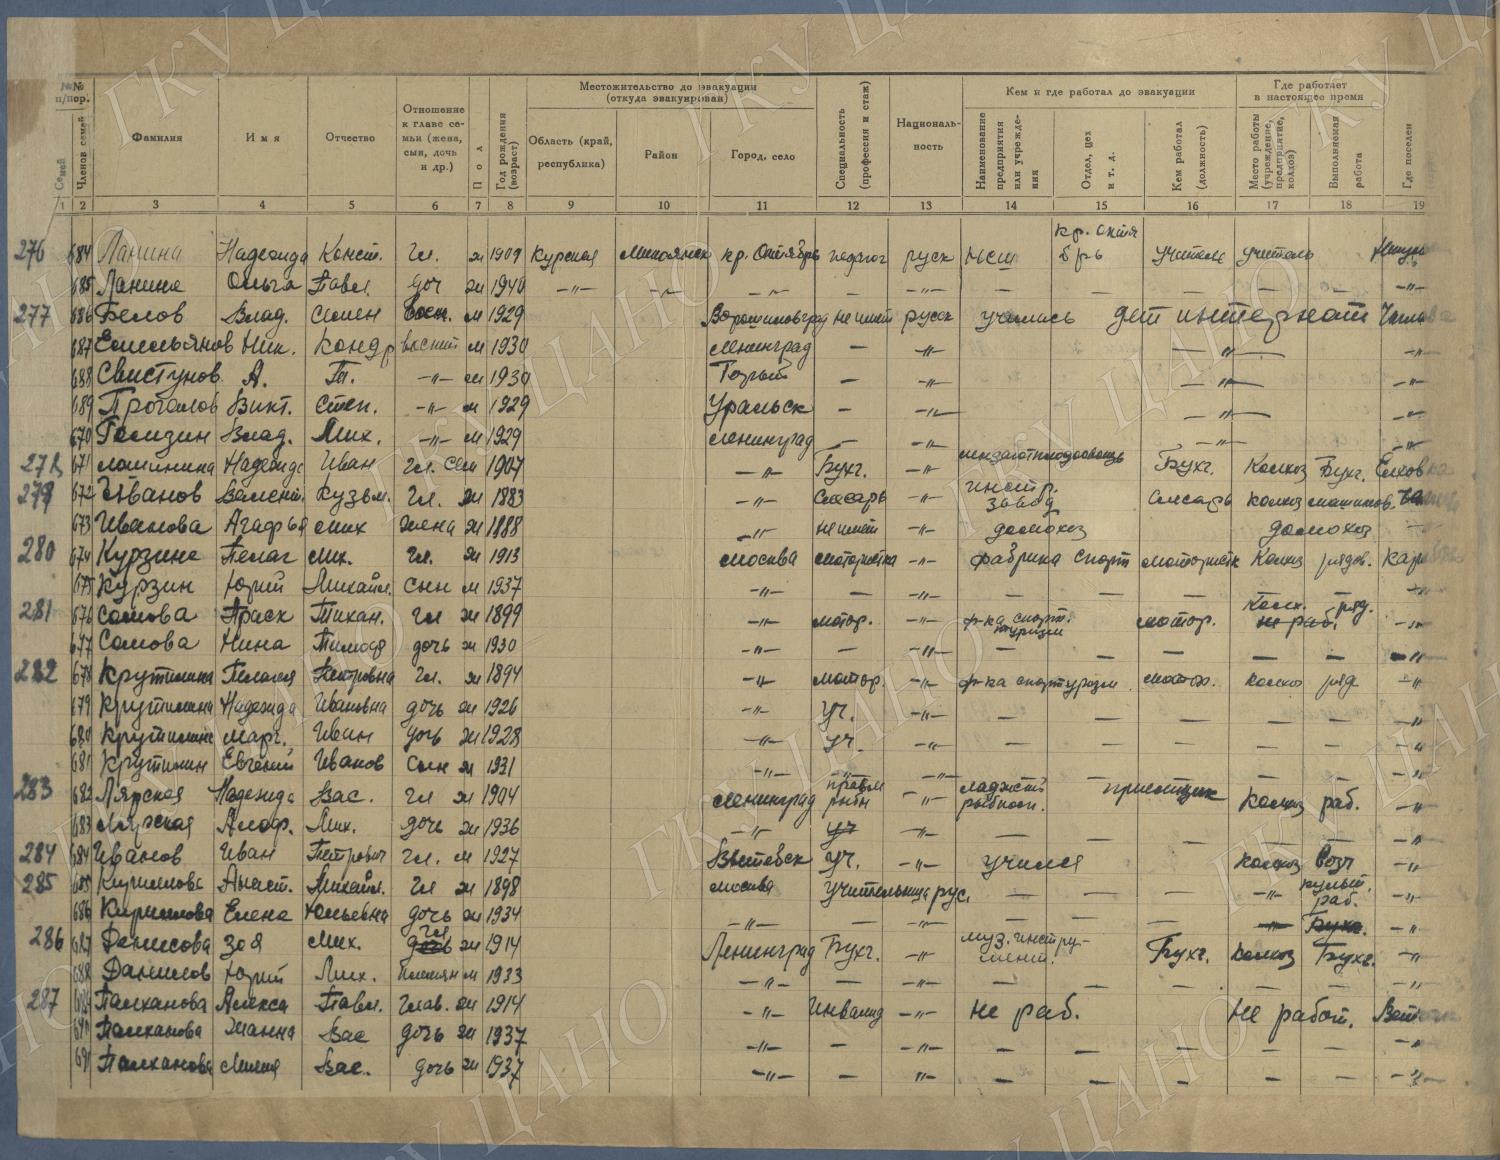 №№ п/пор.
Семей
Членов семей
Фамилия
Имя
Отчество
Отношение к главе семьи (жена, сын, дочь и др.)
Пол
Год рождения (возраст)
Местожительство до эвакуации (откуда эвакуирован)
Область (край, республика)
Район
Город, село
Специальность (профессия и стаж)
Националь-ность
Кем и где работал до эвакуации
Наименование предприятия или учрежде-ния
Отдел, цех и т. д.
Кем работал (должность)
Где работает в настоящее время
Место работы (учреждение, предприятие, колхоз)
Выполняемая работа
Где поселен
1 2 3 4 5 6 7 8 9 10 11 12 13 14 15 16 17 18 19
276 684 Ланина Надежда Конст. Гл. ж 1909 Курская кр. Октябрь педагог руск НСШ кр. Октябрь учитель учитель
685 Ланина Ольга Павл. доч ж 1940 —"— —"— —"— — —"— — — — — — —"—
277 686 Белов Влад. Семен м 1929 Ворошиловград не имеет русск учились дет интернат
687 Емельянов Ник. Кондр воспит м 1930 Ленинград — —"— —"— —"—
688 Свистунов А. —"— м 1930 — —"— —"— —"—
689 Викт. Степ. —"— м 1929 Уральск — —"— —"— —"—
670 Влад. Мих. —"— м 1929 Ленинград — —"— —"— —"—
278 671 Надежда Иван Гл. сем 1907 —"— Бухг. —"— Бухг. Колхоз Бухг. Елховка
279 672 Иванов Валент. Кузьм. Гл. 1883 —"— Слесарь —"— инстр. завод слесарь колхоз
673 Иванова Агафья мих жена ж 1888 —"— не имеет —"— домохоз домохоз —"—
280 674 Курзина Пелаг мих. Гл. ж 1913 Москва мотористка —"— фабрика спорт мотористк Колхоз рядов.
675 Курзин Юрий Михайл. сын м 1937 —"— — —"— — — — — — —"—
281 676 Сомова Праск Тихан. Гл ж 1899 —"— мотор. —"— ф-ка спорт. туризм мотор. Колх. ряд. не раб. —"—
677 Сомова Нина Тимоф дочь ж 1930 —"— — —"— — — — — — —"—
282 678 Крутилина Пелагея Петровна Гл. ж 1894 —"— мотор. —"— ф-ка спорт туризм мотор. колхоз ряд —"—
679 Крутилина Надежда Ивановна дочь ж 1926 —"— уч. —"— — — — — — —"—
680 Крутилина Марг. Иван дочь ж 1928 —"— уч. —"— — — — — — —"—
681 Евгений Иванов сын 1931 —"— —"— —"— — — — — — —"—
283 682 Лярская Надежда Вас. Гл ж 1904 Ленинград —"— колхоз раб. —"—
683 Лярская Мих. дочь ж 1936 —"— уч —"— — — — — — —"—
284 684 Иванов Иван Петрович Гл. м 1927 Витебск уч. —"— учился колхоз Возч —"—
285 685 Кириллова Анаст. Михайл. Гл ж 1898 Москва учительница рус. — — — —"— культ. раб. —"—
686 Кириллова Елена Юльевна дочь ж 1934 —"— — —"— — — — —"— Бухг. —"—
286 687 Денисова Зоя Мих. гл дочь ж 1914 Ленинград Бухг. —"— муз. инстру-мент. Бухг. колхоз Бухг. —"—
688 Данилов Юрий Мих. м 1933 —"— — —"— — — — — — —"—
287 689 Палканова Алекса Павл. Глав. ж 1914 —"— Инвалид —"— не раб. не работ.
690 Палканова Жанна Вас дочь ж 1937 —"— — —"— — — — — — —"—
691 Палканова Лилия Вас. дочь ж 1937 —"— — —"— — — — — — —"—
ГКУ ЦАНО